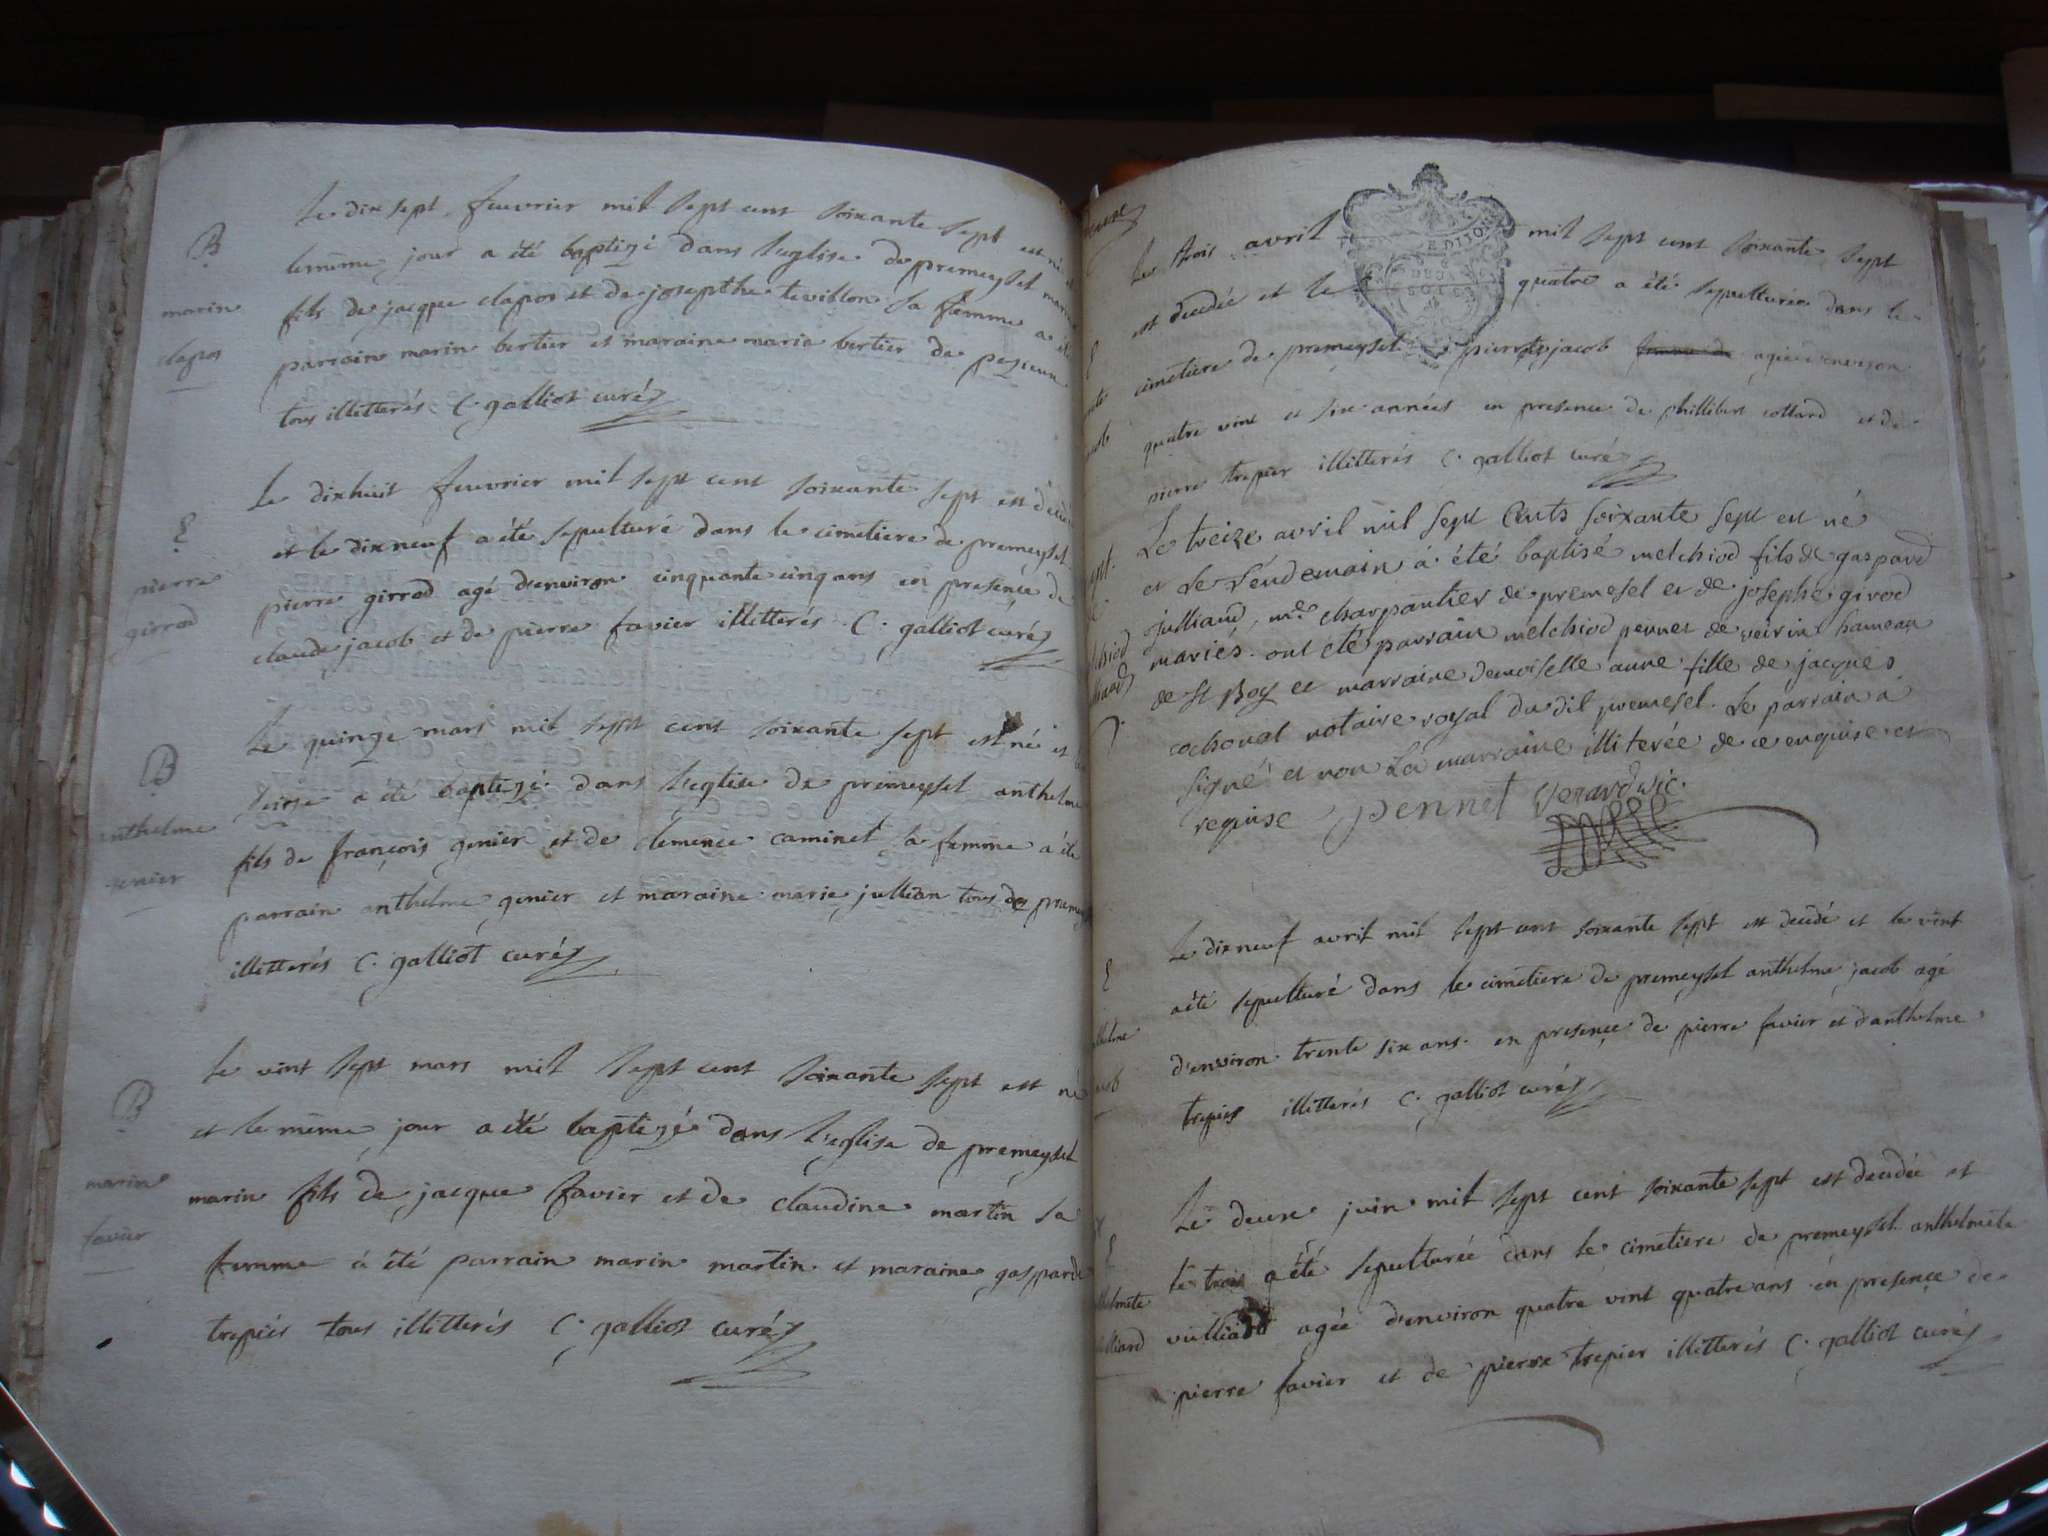 B
marin
clapos
Le dix sept feuvrier mil sept cent soixante sept est né et
le même jour a été baptizé dans l'eglise de premeysel marin
fils de jacque clapos et de josepthe tevillon sa femme a été
parrain marin bertier et maraine marie bertier de peyzieu
tous illitterés C. galliot curé
E
pierre
girrod
Le dixhuit feuvrier mil sept cent soixante sept est décédé
et le dixneuf a été sepulturé dans le cimetiere de premeysel
pierre girrod agé d'environ cinquante cinq ans en presence de
claude jacob et de pierre favier illitterés C. galliot curé
B
anthelme
genier
Le quinze mars mil sept cent soixante sept est né et le
seize a été baptizé dans l'eglise de premeysel anthelme
fils de françois genier et de clemence caminet sa femme a été
parrain anthelme genier et maraine marie jullian tous de premeysel
illitterés C. galliot curé
B
marin
favier
Le vint sept mars mil sept cent soixante sept est né
et le même jour a été baptizé dans l'eglise de premeysel
marin fils de jacque favier et de claudine martin sa
femme a été parrain marin martin et maraine gasparde
trepier tous illitterés C. galliot curé
Le trois avril mil sept cent soixante sept
est decedée et le quatre a été sepulturée dans le
cimetiere de premeysel pierrete jacob femme de agée d'environ
quatre vint et six années en presence de phillibert cottard et de
pierre trepier illitterés C. galliot curé
Le treize avril mil sept cents soixante sept est né
et le lendemain à été baptisé melchiod fils de gaspard
julliand, me charpantier de premesel et de josephe girod
mariés. ont été parrain melchiod pennet de veirin hameau
de St Boy et marraine demoiselle anne fille de jacques
cochonat notaire royal du dit premesel. Le parrain a
signé et non La marraine illiterée de ce enquise et
requise pennet verard vic.
E
anthelme
jacob
Le dixneuf avril mil sept cent soixante sept est decédé et le vint
a été sepulturé dans le cimetiere de premeysel anthelme jacob agé
d'environ trente six ans en presence de pierre favier et d'anthelme
trepier illitterés C. galliot curé
E
anthelmete
vulliard
Le deuxe juin mil sept cent soixante sept est decedée et
le trois a été sepulturée dans le cimetiere de premeysel anthelmete
vulliard agée d'environ quatre vint quatre ans en presence de
pierre favier et de pierre trepier illitterés C. galliot curé